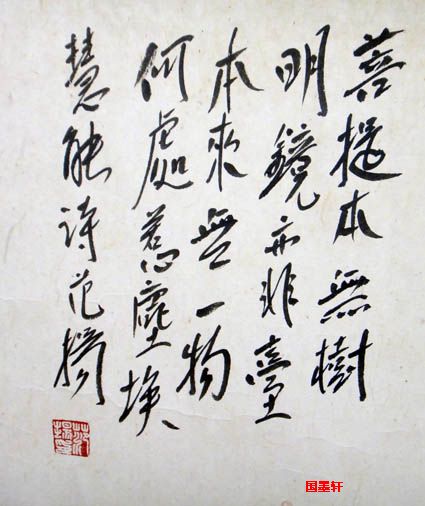 菩提本無樹
明鏡亦非臺
本來無一物
何處惹塵埃
慧能詩范揚
国墨轩